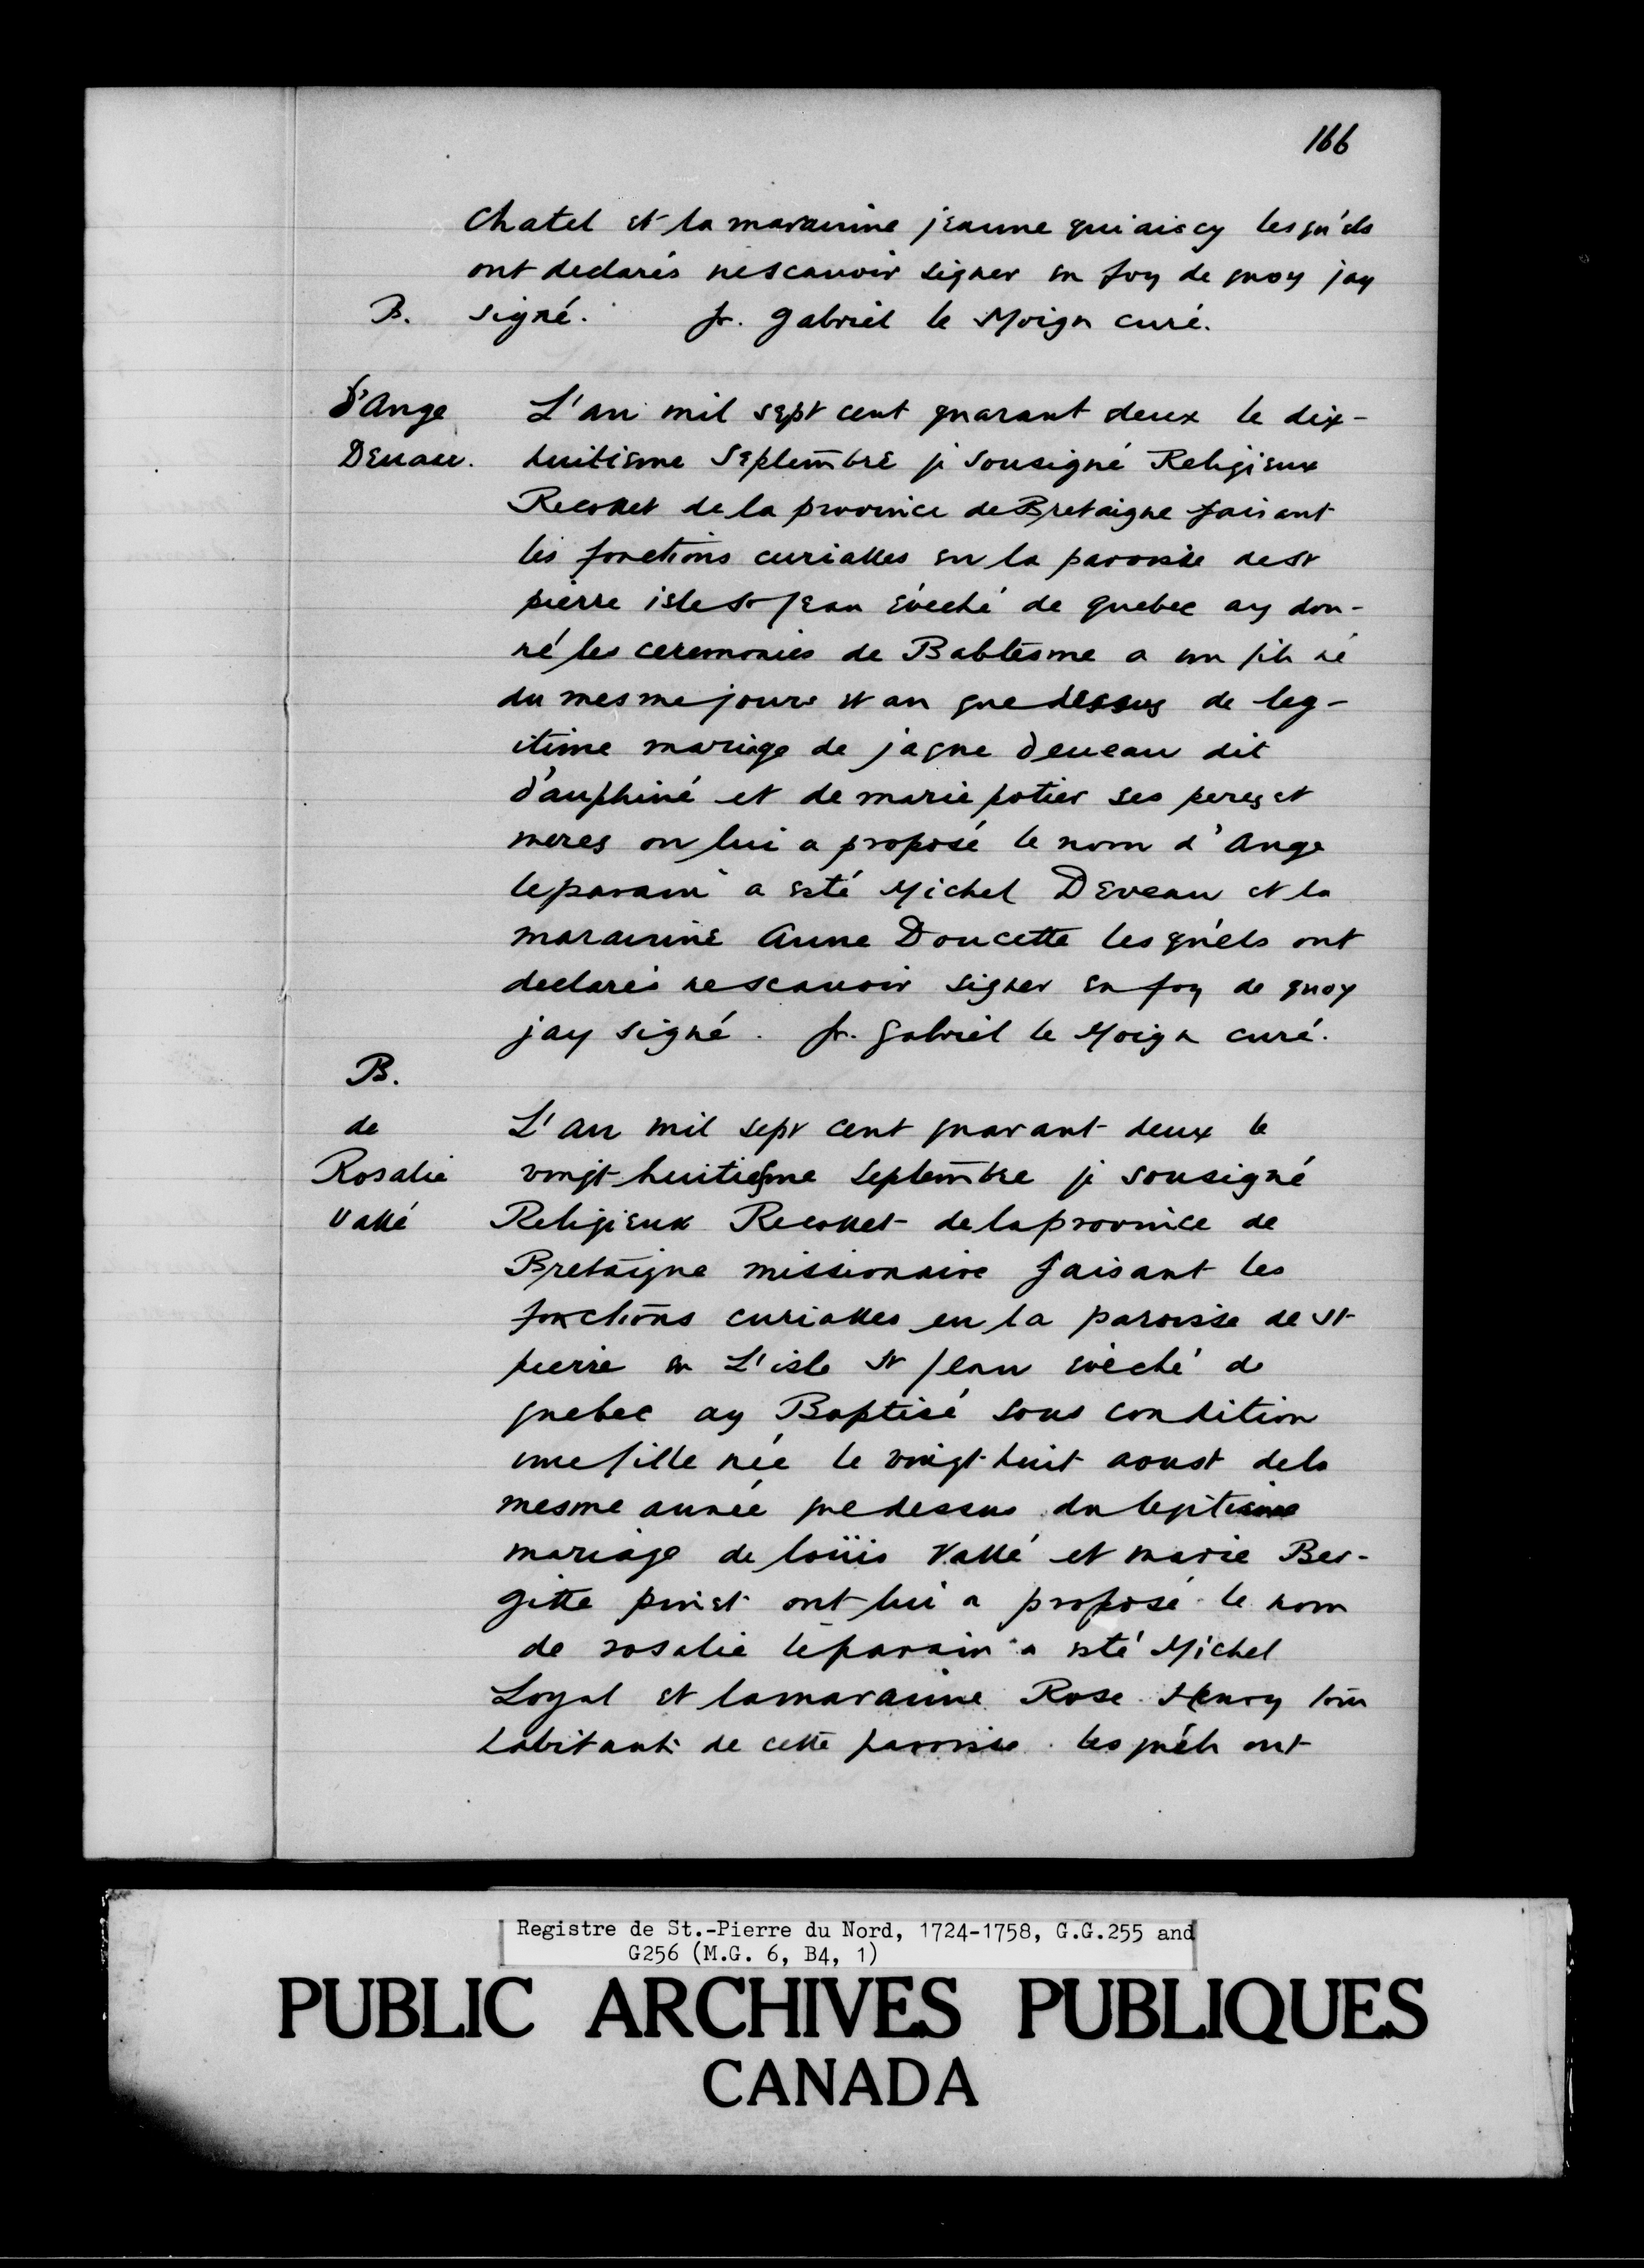 166
Chatel et la maranine jeanne quiaicy lesquels
ont declarés nescauoir signer en foy de quoy jay
B. signé. fr. gabriel le Moign curé.
d'Ange
Deuau.
L'an mil sept cent quarant deux le dix-
huitiesme Septembre je sousigné Religieux
Recollet de la province de Bretaigne faisant
les fonctions curialles en la paroisse de st
pierre isle st jean évéché de quebec ay don-
né les ceremonies de Babtesme a un fils né
du mesme jour et an que dessus de leg-
itime mariage de jaque deueau dit
d'auphiné et de marie potier ses peres et
meres on lui a proposé le nom d'Ange
leparain a esté Michel Deveau et la
maranine Anne Doucette lesquels ont
declarés nescauoir signer en foy de quoy
jay signé. fr. gabriel le Moign curé.
B.
de
Rosalie
Vallé
L'an mil sept cent quarant deux le
vingt huitiesme Septembre je sousigné
Religieux Recollet de la province de
Bretaigne missionaire faisant les
fonctions curialles en la paroisse de st
pierre en L'isle st jean evèché de
quebec ay Baptisé sous condition
une fille née le vingt-huit aoust dela
mesme année que dessus du legitime
mariage de loüis Vallé et marie Ber-
gitte pinet ont lui a proposé le nom
de rosalie leparain a esté Michel
Loyal et lamaranine Rose Henry tous
habitant de cette paroisse lesquels ont
Registre de St.-Pierre du Nord, 1724-1758, G.G.255 and
G256 (M.G. 6, B4, 1)
PUBLIC ARCHIVES PUBLIQUES
CANADA